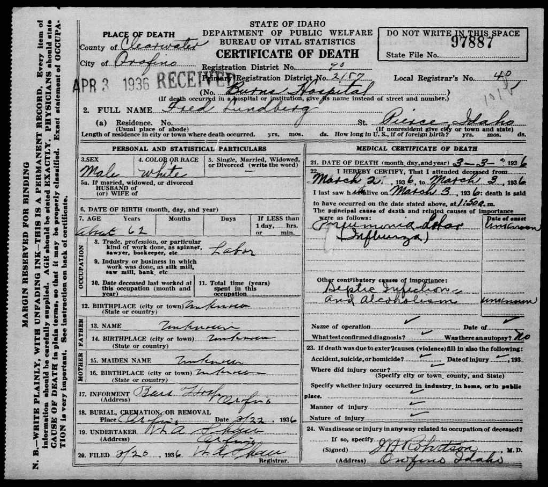 STATE OF IDAHO
DEPARTMENT OF PUBLIC WELFARE
BUREAU OF VITAL STATISTICS
CERTIFICATE OF DEATH
DO NOT WRITE IN THIS SPACE
97887
State File No.
PLACE OF DEATH
County of Clearwater
City of Orofino
APR 3 1936 RECEIVED
Registration District No. 70
Primary Registration District No. 2157
Local Registrar's No. 40
(No. Burns Hospital
(If death occurred in a hospital or institution, give its name instead of street and number.)
2. FULL NAME Fred Lindberg
(a) Residence. No. St. Pierce, Idaho
(Usual place of abode) (If nonresident give city or town and state)
Length of residence in city or town where death occurred. yrs. mos. ds. How long in U.S., if of foreign birth? yrs. mos. ds.
PERSONAL AND STATISTICAL PARTICULARS
3. SEX
Male
4. COLOR OR RACE
White
5. Single, Married, Widowed, or Divorced (write the word)
5a. If married, widowed, or divorced
HUSBAND of
(or) WIFE of
6. DATE OF BIRTH (month, day, and year)
7. AGE Years Months Days If LESS than 1 day, hrs. or min.
about 62
OCCUPATION
8. Trade, profession, or particular kind of work done, as spinner, sawyer, bookkeeper, etc. Labor
9. Industry or business in which work was done, as silk mill, saw mill, bank, etc.
10. Date deceased last worked at this occupation (month and year)
11. Total time (years) spent in this occupation
12. BIRTHPLACE (city or town) Unknown
(State or country)
FATHER
13. NAME Unknown
14. BIRTHPLACE (city or town) Unknown
(State or country)
MOTHER
15. MAIDEN NAME Unknown
16. BIRTHPLACE (city or town) Unknown
(State or country)
17. INFORMENT
Orofino
18. BURIAL, CREMATION, OR REMOVAL
Place Orofino Date 3/22, 1936
19. UNDERTAKER
Orofino
20. FILED 3/20 1936
Registrar.
MEDICAL CERTIFICATE OF DEATH
21. DATE OF DEATH (month, day, and year) 3-3-1936
22. I HEREBY CERTIFY, That I attended deceased from
March 2, 1936, to March 3, 1936
I last saw him alive on March 3, 1936; death is said
to have occurred on the date stated above, at
The principal cause of death and related causes of importance were as follows:
Date of onset
Pneumonia Lobar unknown
(Influenza)
Other contributory causes of importance:
Septic Infection
and Alcoholism unknown
Name of operation Date of
What test confirmed diagnosis? Was there an autopsy? No
23. If death was due to external causes (violence) fill in also the following:
Accident, suicide, or homicide? Date of injury , 193
Where did injury occur?
(Specify city or town, county, and State)
Specify whether injury occurred in industry, in home, or in public place.
Manner of injury
Nature of injury
24. Was disease or injury in any way related to occupation of deceased?
If so, specify
(Signed) J M Robertson M.D.
Orofino Idaho
MARGIN RESERVED FOR BINDING
N. B.—WRITE PLAINLY, WITH UNFADING INK—THIS IS A PERMANENT RECORD. Every item of
information should be carefully supplied. AGE should be stated EXACTLY. PHYSICIANS should state
CAUSE OF DEATH in plain terms, so that it may be properly classified. Exact statement of OCCUPA-
TION is very important. See instruction on back of certificate.